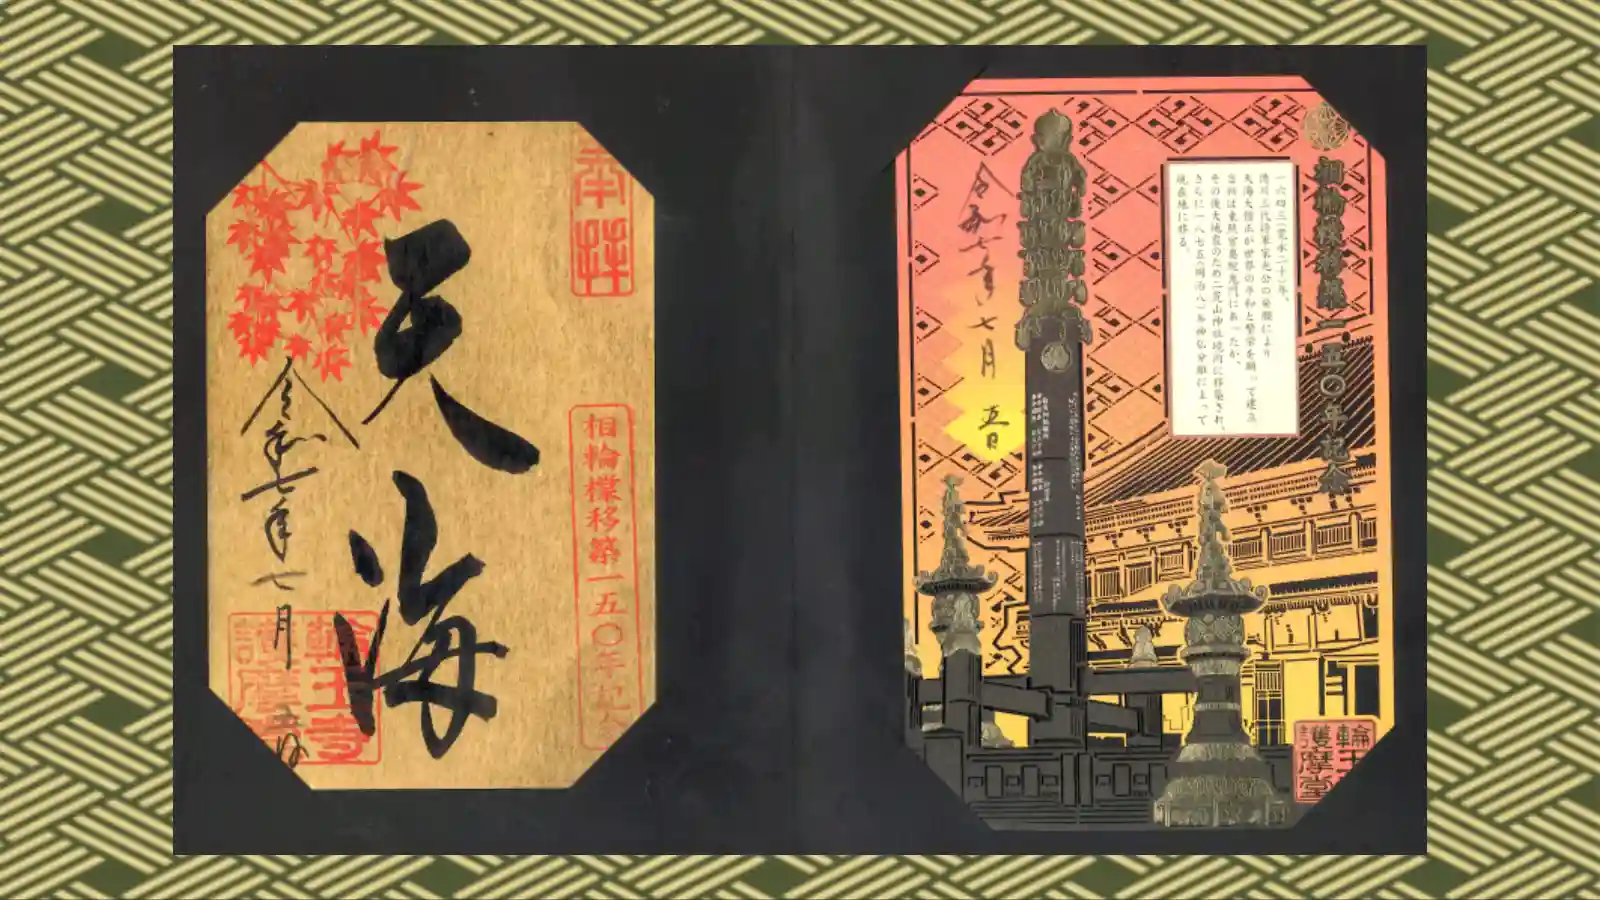 奉拝
天海
相輪橖移築一五〇年記念
令和七年七月
五日
輪王寺
護摩堂
相輪橖移築一五〇年記念
一六四三(寛永二十)年、
徳川三代将軍家光公の発願により
天海大僧正が世界の平和と繁栄を願って建立。
当初は東照宮奥院鬼門にあったが、
その後大地震のため二荒山神社境内に移築され、
さらに一八七五(明治八)年神仏分離によって
現在地に移る。
令和七年七月
五日
輪王
護摩堂